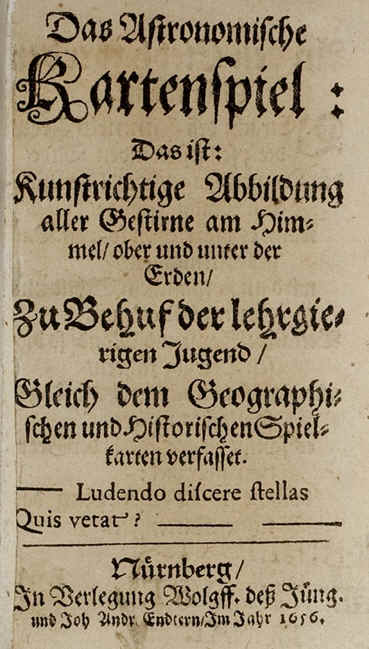 Das Astronomische
Kartenspiel:
Das ist:
Kunstrichtige Abbildung
aller Gestirne am Him⸗
mel/ ober und unter der
Erden/
Zu Behuf der lehrgie⸗
rigen Jugend /
Gleich dem Geographi⸗
schen und Historischen Spiel⸗
karten verfasset.
— Ludendo diſcere ſtellas
Quis vetat? — —
Nürnberg/
In Verlegung Wolgff. deß Jüng.
und Joh Andr. Endtern/Im Jahr 1656.